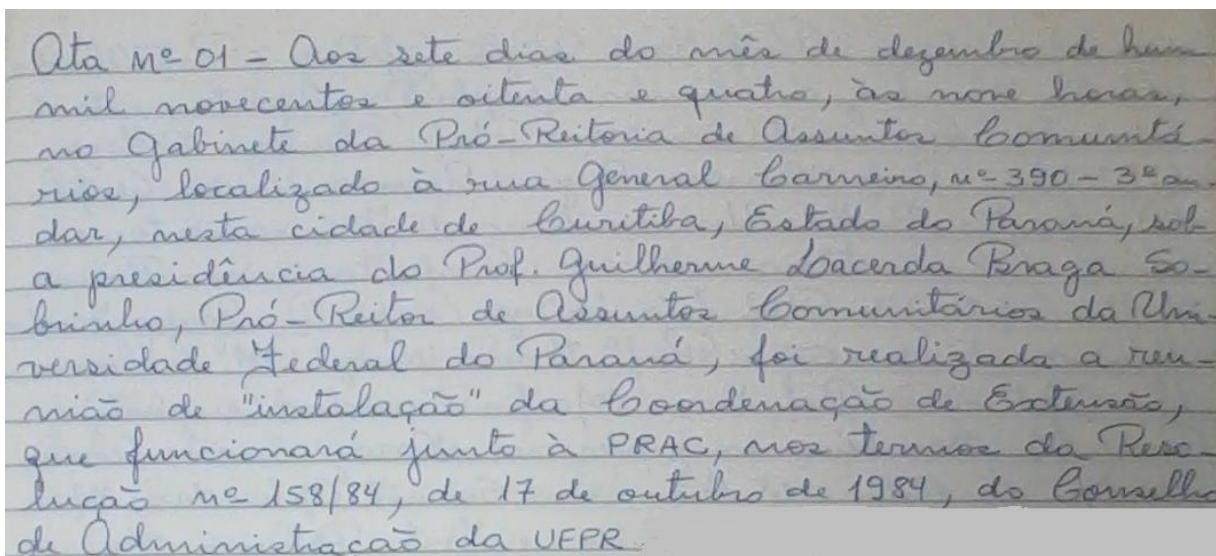 Ata nº 01 - Aos sete dias do mês de dezembro de hum
mil novecentos e oitenta e quatro, às nove horas,
no Gabinete da Pró-Reitoria de Assuntos Comunitá-
rios, localizado à rua General Carneiro, nº 390 - 3º an-
dar, nesta cidade de Curitiba, Estado do Paraná, sob
a presidência do Prof. Guilherme Lacerda Braga So-
brinho, Pró-Reitor de Assuntos Comunitários da Uni-
versidade Federal do Paraná, foi realizada a reu-
nião de "instalação" da Coordenação de Extensão,
que funcionará junto à PRAC, nos termos da Reso-
lução nº 158/84, de 17 de outubro de 1984, do Conselho
de Administração da UFPR